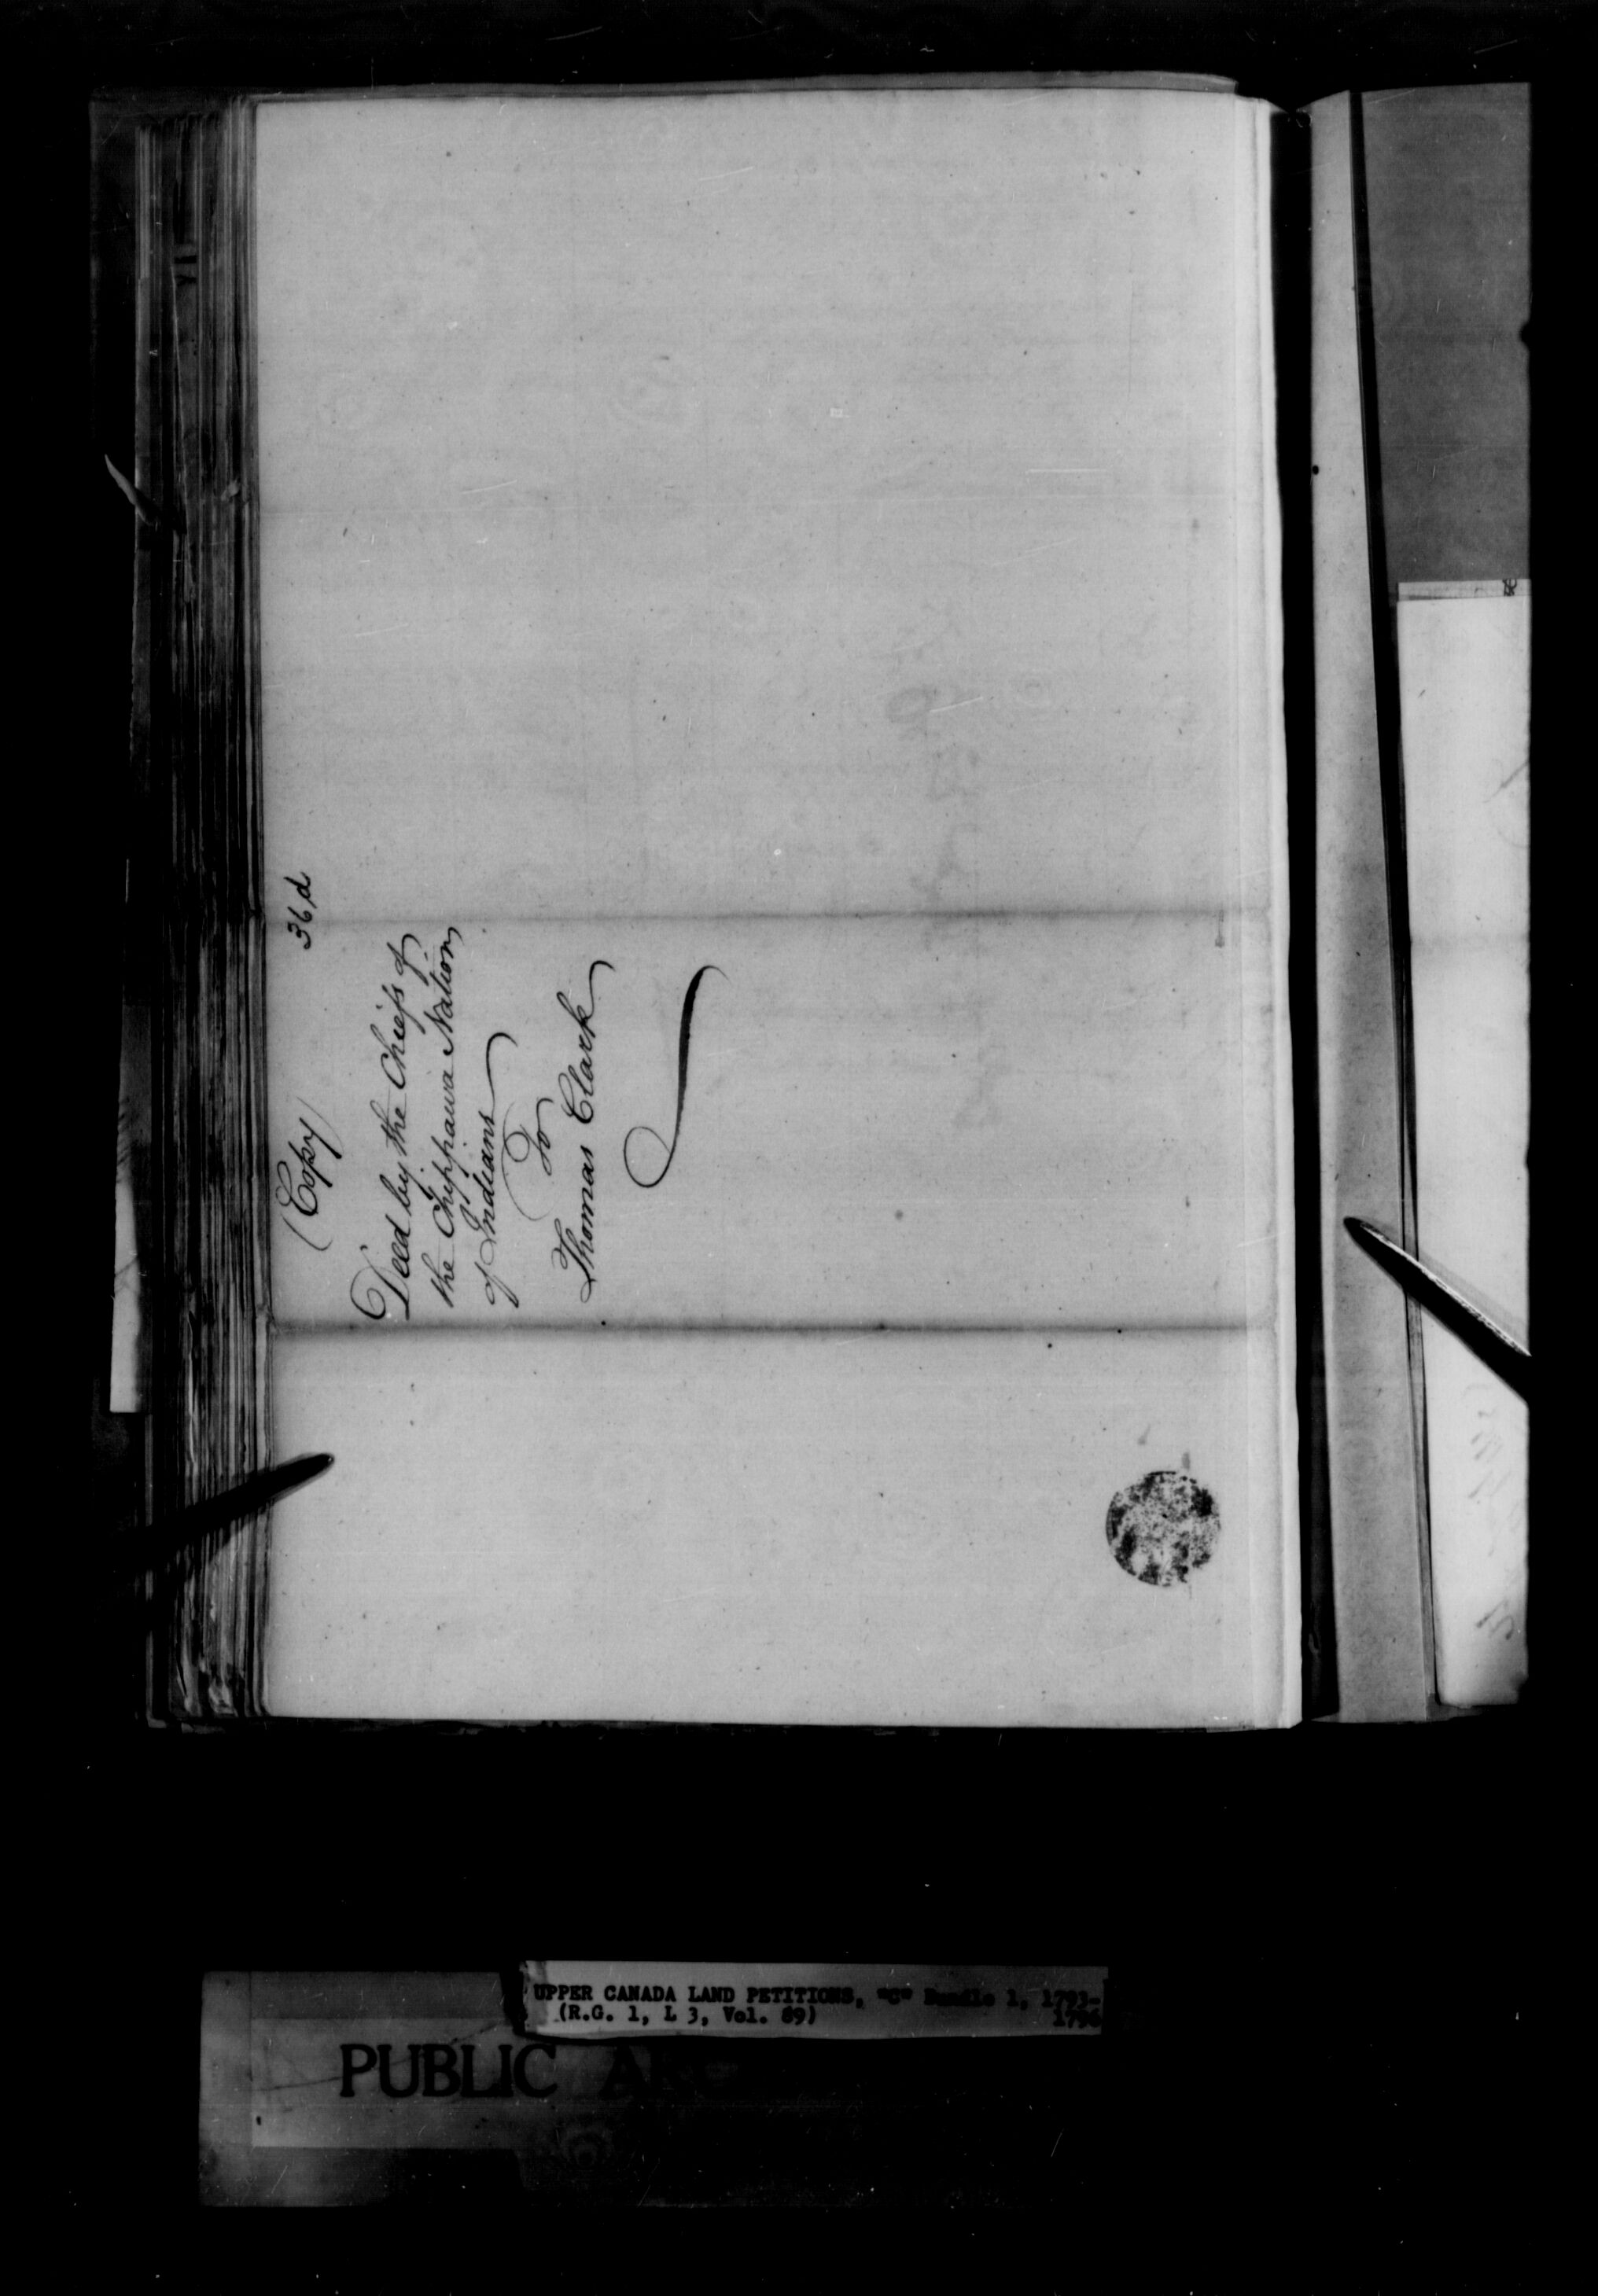 36,d
(Copy)
Deed by the Chiefs of
the Chippawa Nation
of Indians
To
Thomas Clark
UPPER CANADA LAND PETITIONS, "C" Bundle 1, 1793-
(R.G. 1, L 3, Vol. 89) 1796
PUBLIC